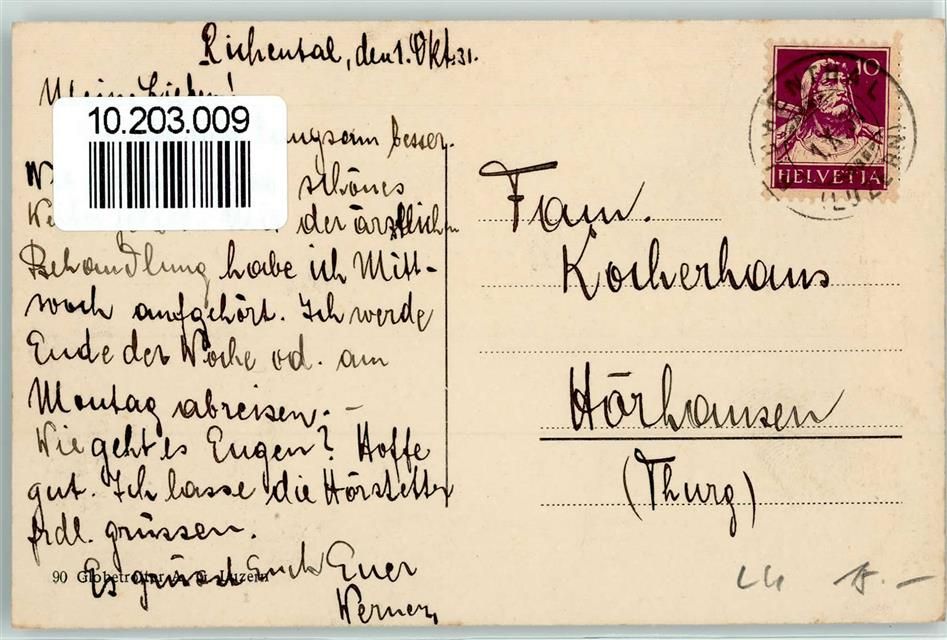 Richental, den 1. Okt. 31.
Meine Lieben!
10.203.009
besser.
schönes
der ärztlichen
Behandlung habe ich Mitt-
woch aufgehört. Ich werde
Ende der Woche od. am
Montag abreisen. -
Wie geht es Eugen? Hoffe
gut. Ich lasse die Hörstetter
frdl. grüssen.
Es grüsst Euch Euer
Werner,
90 Globetrotter A. G. Luzern
10
HELVETIA
(LUZERN)
Fam.
Kocherhans
Hörhausen
(Thurg)